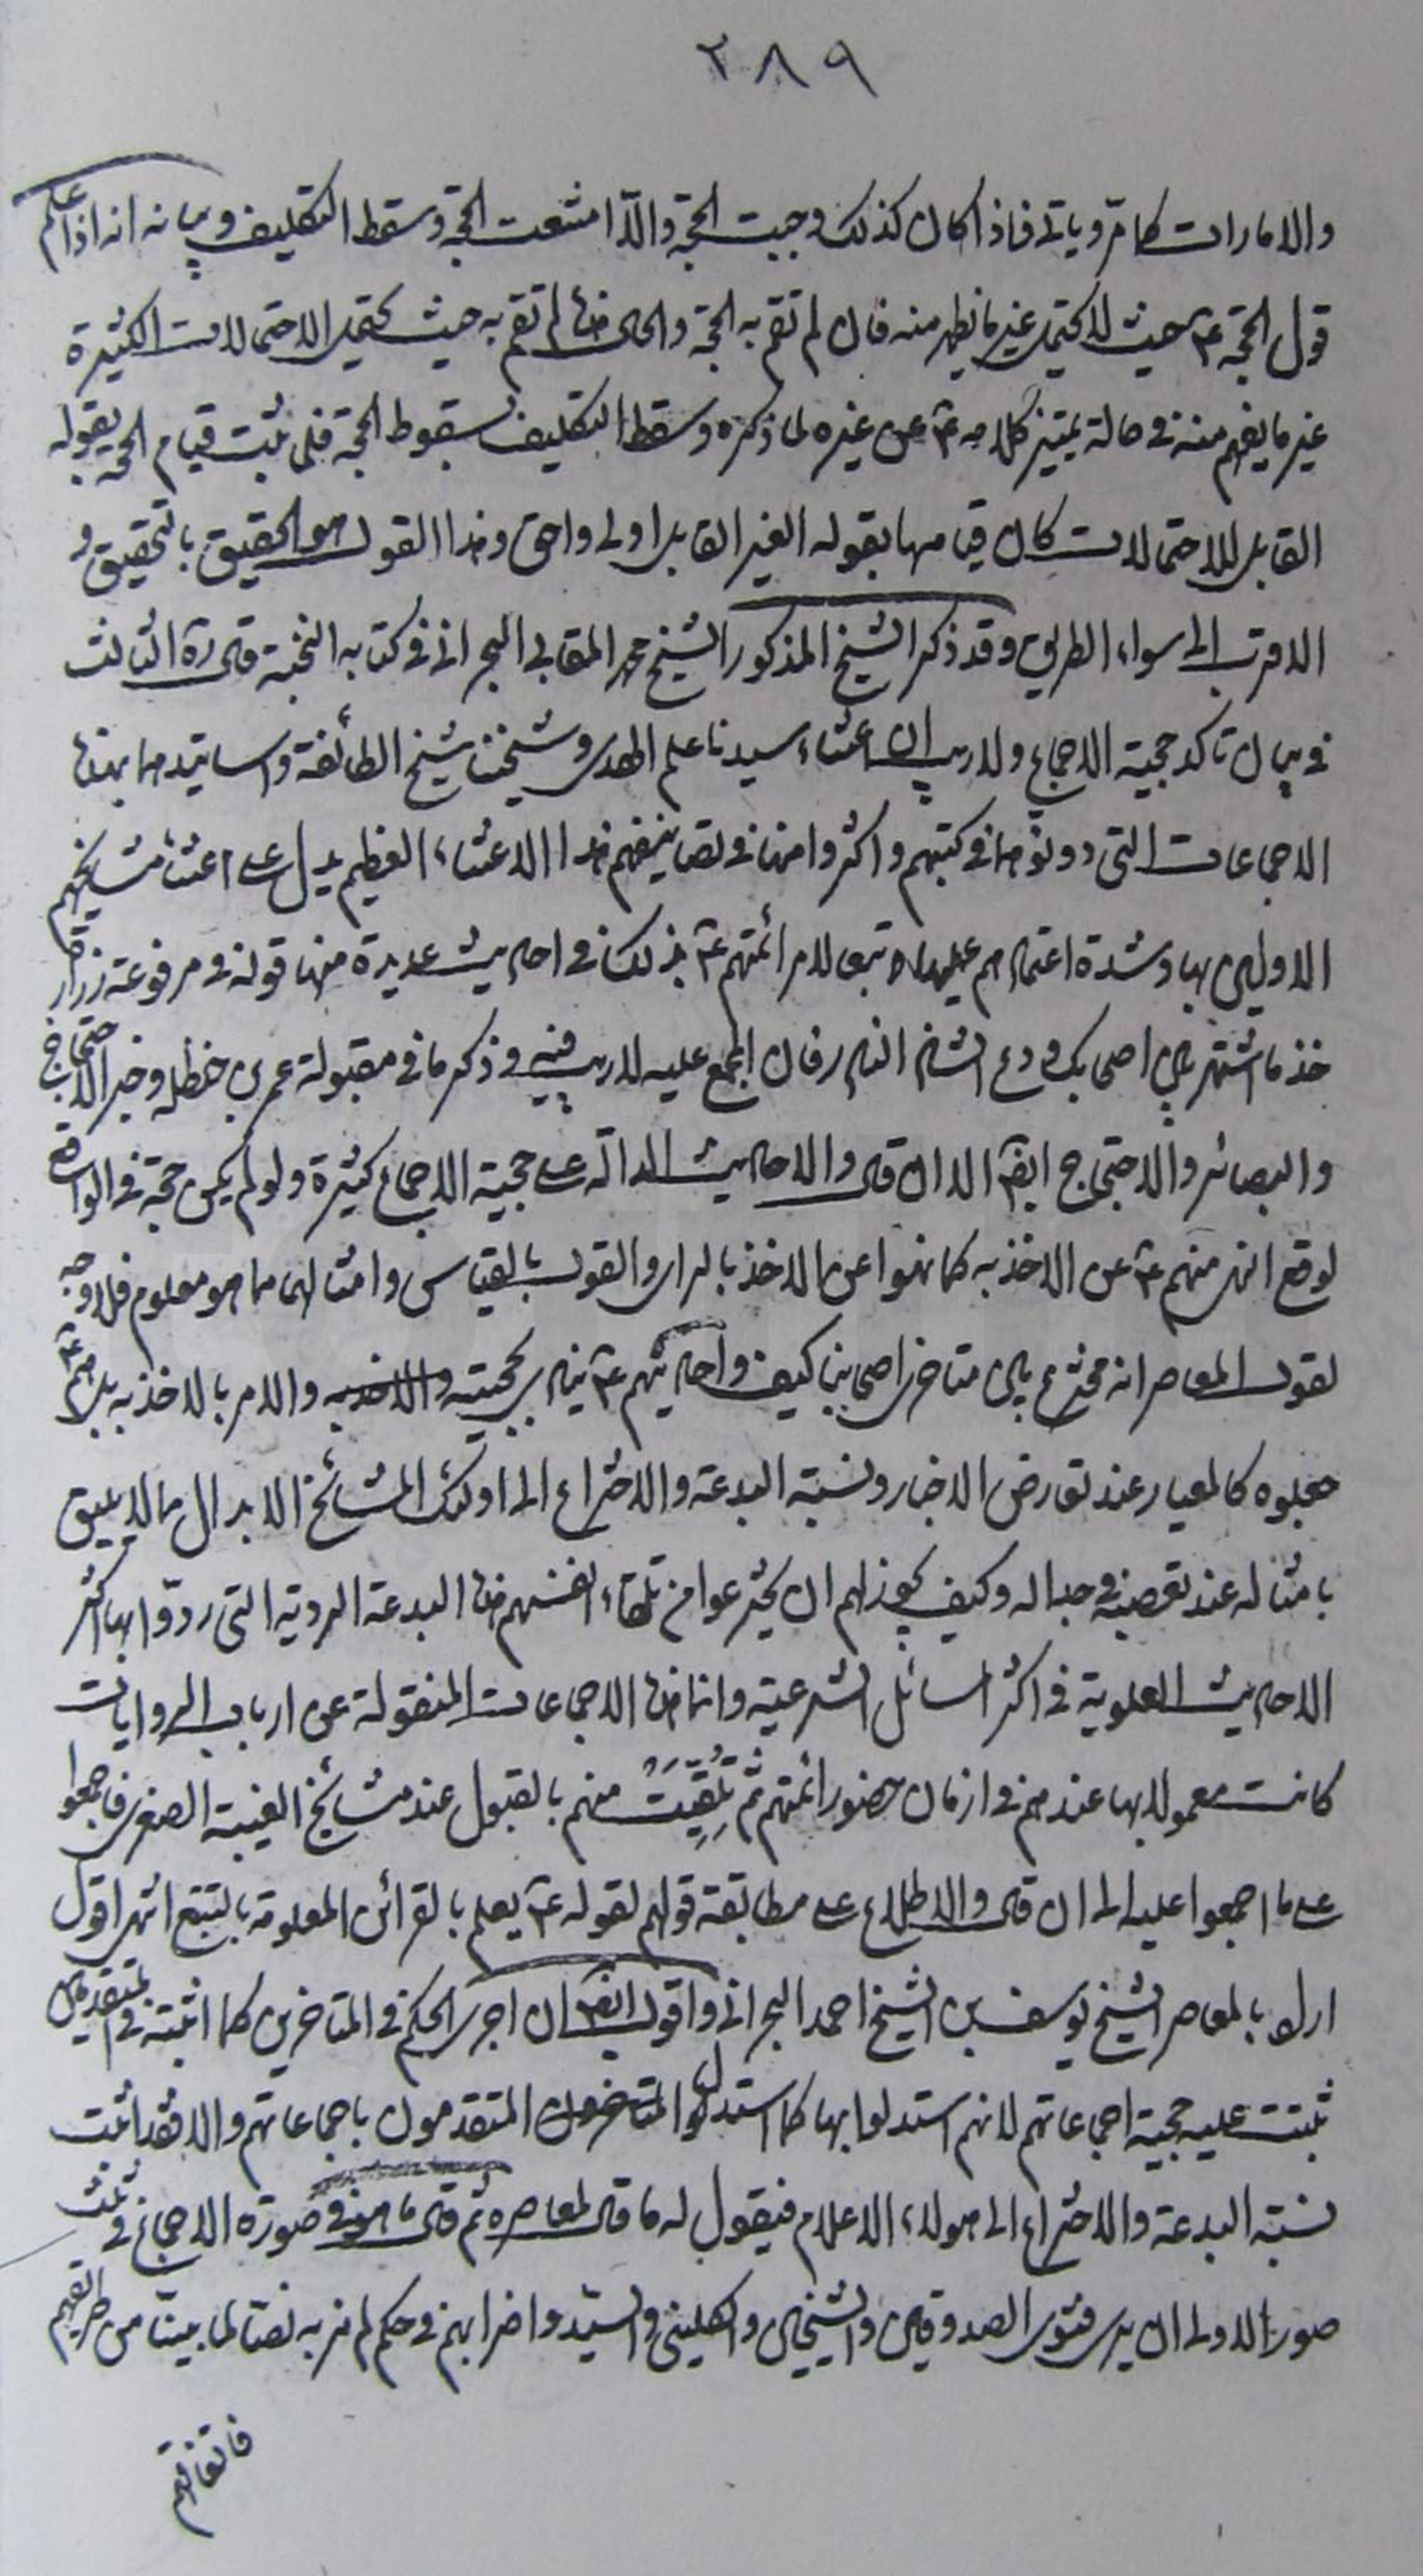 ٢٨٩
والامارات كما مرّ وياتى فاذا كان كذلك وجبت الحجة والّا امتنعت الحجة وسقط التكليف وبيانه انه اذا علم
قول الحجة ع حيث لا يحتمل غير ما يظهر منه فان لم تقم به الحجة والحال هذه لم تقم به حيث يحتمل الاحتمالات الكثيرة
غير ما يفهم منه فى حالة يتميز كلامه ع عن غيره لما ذكره وسقط التكليف بسقوط الحجة فلما ثبت قيام الحجة بقوله
القابل للاحتمالات كان قيامها بقوله الغير القابل اولى واحق وهذا القول هو الحقيق بالتحقيق و
الاقرب الى سواء الطريق وقد ذكر الشيخ المذكور الشيخ محمد المقابى البحرانى فى كتابه النخبة قال ره الثالث
فى بيان تاكد حجية الاجماع ولا ريب ان اعتناء سيدنا علم الهدى وشيخنا شيخ الطائفة واساتيدهما بهذه
الاجماعات التى دونوها فى كتبهم واكثروا منها فى تصانيفهم هذا الاعتناء العظيم يدل على اعتناء مشايخهم
الاولين بها وشدة اعتمادهم عليها تبعا لامر ائمتهم ع بذلك فى احاديث عديدة منها قوله فى مرفوعة زرارة
خذ ما اشتهر بين اصحابك ودع الشاذ النادر فان المجمع عليه لا ريب فيه وذكر ما فى مقبولة عمر بن حنظلة وخبر الاحتجاج
والبصائر والاحتجاج ايضا الى ان قال والاحاديث الدالّة على حجية الاجماع كثيرة ولو لم يكن حجة فى الواقع
لوقع النهى منهم ع عن الاخذ به كما نهوا عن الاخذ بالراى والقول بالقياس وامثالهما مما هو معلوم فلا وجه
لقول المعاصر انه مخترع بين متاخرى اصحابنا كيف واحاديثهم ع تنادى بحجيته والاخذ به والامر بالاخذ به بل هم ع
جعلوه كالمعيار عند تعارض الاخبار ونسبة البدعة والاختراع الى اولئك المشائخ الابدال مما لا يليق
بامثاله عند تعرضه وجداله وكيف يجوز لهم ان يخترعوا من تلقاء انفسهم هذه البدعة الردية التى ردّوا بها اكثر
الاحاديث العلوية فى اكثر المسائل الشرعية وانما هذه الاجماعات المنقولة عن ارباب الروايات
كانت معمولا بها عندهم فى ازمان حضور ائمتهم ثم تُلُقِّيَتْ منهم بالقبول عند مشائخ الغيبة الصغرى فاجمعوا
على ما اجمعوا عليه الى ان قال والاطلاع على مطابقة قولهم لقوله ع يعلم بالقرائن المعلومة بالتتبع انتهى اقول
اراد بالمعاصر الشيخ يوسف بن الشيخ احمد البحرانى واقول ايضا ان اجرى الحكم فى المتاخرين كما اثبته فى المتقدمين
ثبتت عليه حجية اجماعاتهم لانهم استدلوا بها كما استدلوا المتاخرون المتقدمون باجماعاتهم والا فقد اثبت
نسبة البدعة والاختراع الى هولاء الاعلام فيقول له ما قال لمعاصره ثم قال ما هو فى صورة الاجماع فى ثلث
صور الاولى ان يرى فتوى الصدوقين والشيخين والكلينى والسيّد واضرابهم فى حكم لم نر به نصّا لما بينّا من طريقتهم
فاتفاقهم